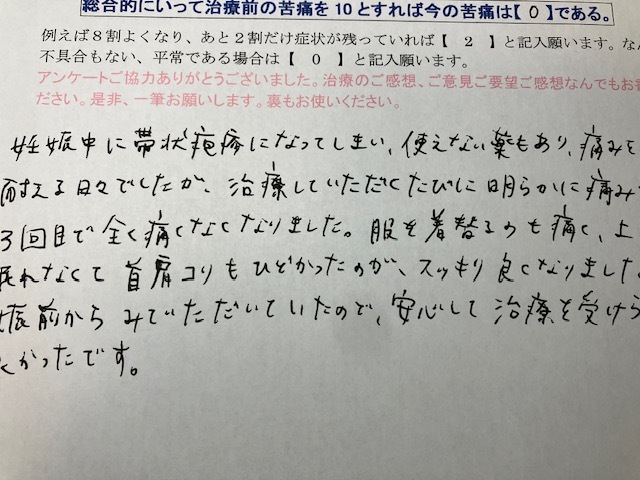 総合的にいって治療前の苦痛を10とすれば今の苦痛は【 0 】である。
例えば8割よくなり、あと2割だけ症状が残っていれば【 2 】と記入願います。な
不具合もない、平常である場合は【 0 】と記入願います。
アンケートご協力ありがとうございました。治療のご感想、ご意見ご要望ご感想なんでもお
ださい。是非、一筆お願いします。裏もお使いください。
妊娠中に帯状疱疹になってしまい、使えない薬もあり、痛みを
耐える日々でしたが、治療していただくたびに明らかに痛み
3回目で全く痛くなくなりました。服を着替るのも痛く、上
眠れなくて首肩コリもひどかったのが、スッキリ良くなりました
娠前からみていただいていたので、安心して治療を受けら
良かったです。